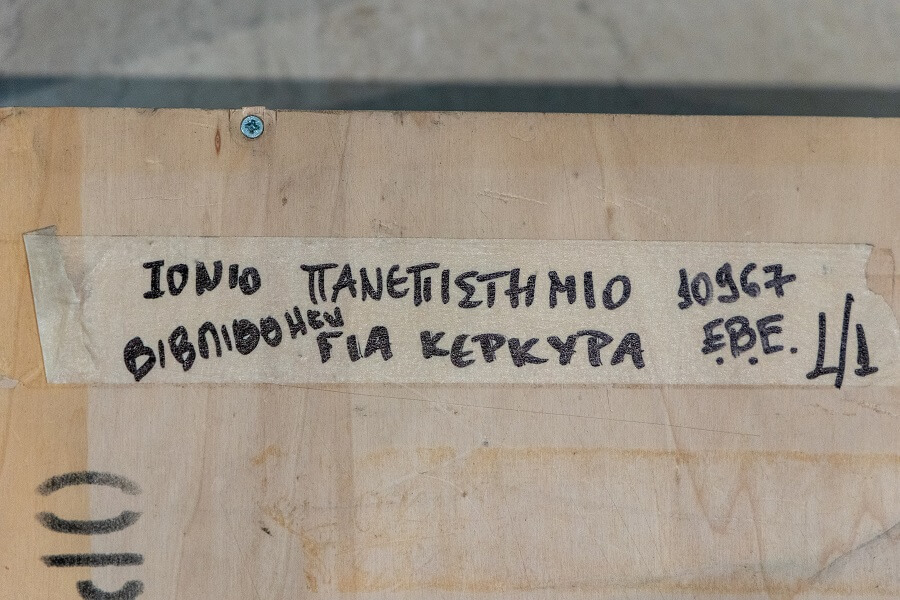 ΙΟΝΙΟ ΠΑΝΕΠΙΣΤΗΜΙΟ 10967
ΓΙΑ ΚΕΡΚΥΡΑ Ε.Β.Ε. 1/1